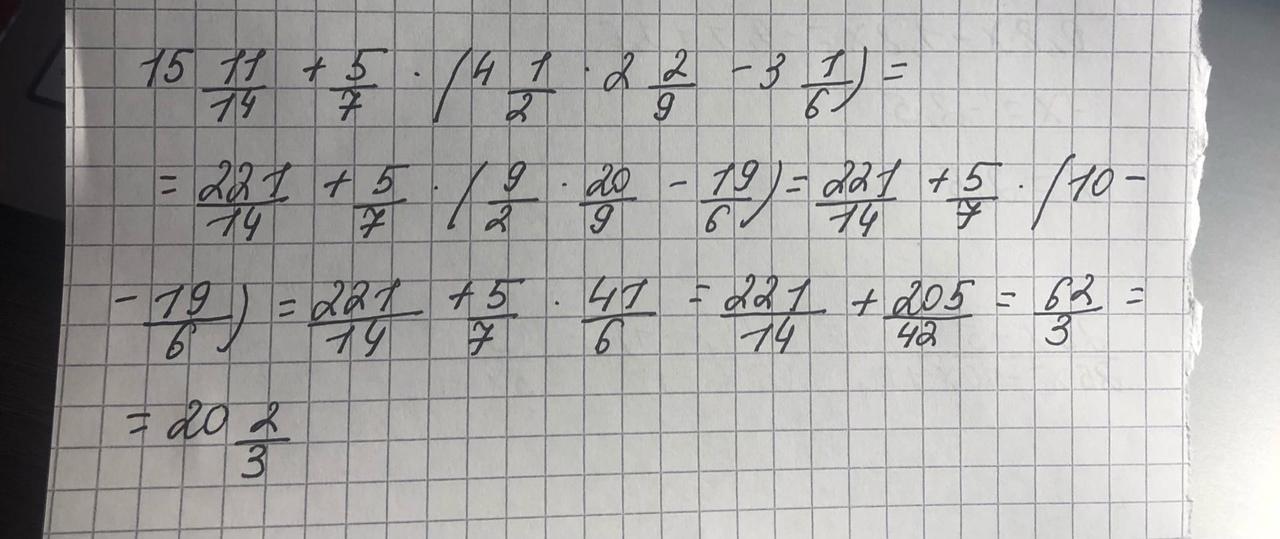 15 11/14 + 5/7 · (4 1/2 · 2 2/9 - 3 1/6) =
= 221/14 + 5/7 · (9/2 · 20/9 - 19/6) = 221/14 + 5/7 · (10 -
- 19/6) = 221/14 + 5/7 · 41/6 = 221/14 + 205/42 = 62/3 =
= 20 2/3